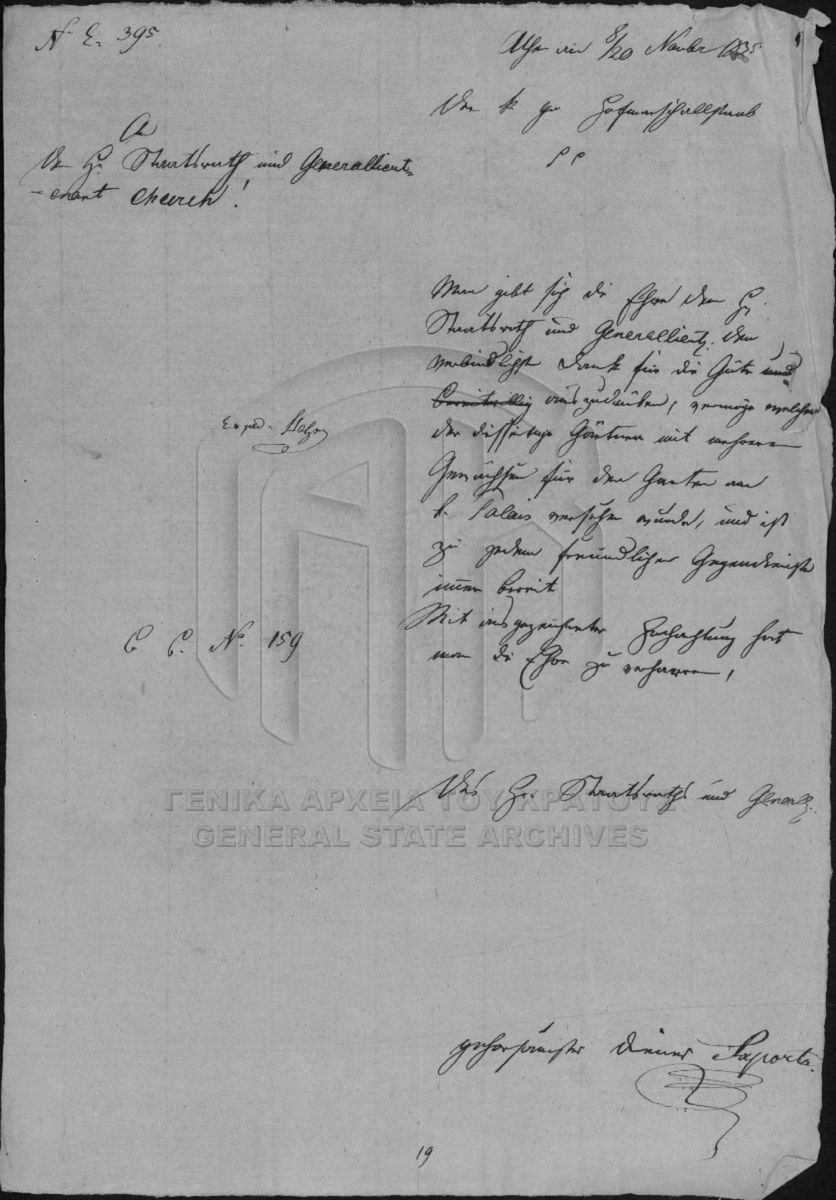 N. E. 395.
Athen den 8/20 Novber 1835
Der k. gr. Hofmarschallstaab
pp
An
Den H. Staatsrath und Generallieut-
-enant Church!
Man gibt sich die Ehre dem H.
Staatsrath und Generallieut. den
verbindlichsten Dank für die Güte und
Bereitwillig auszudrücken, vermöge welcher
der disseitige Gärtner mit mehreren
Gewächsen für den Garten am
k. Palais versehen wurde, und ist
zu jedem freundlichen Gegendienste
immer bereit
Mit ausgezeichneter Hochachtung hat
man die Ehre zu verharren,
Exped.
C. C. No. 159
Des H. Staatsraths und Generall.
gehorsamster Diener Saporta.
19
ΓΕΝΙΚΑ ΑΡΧΕΙΑ ΤΟΥ ΚΡΑΤΟΥΣ
GENERAL STATE ARCHIVES